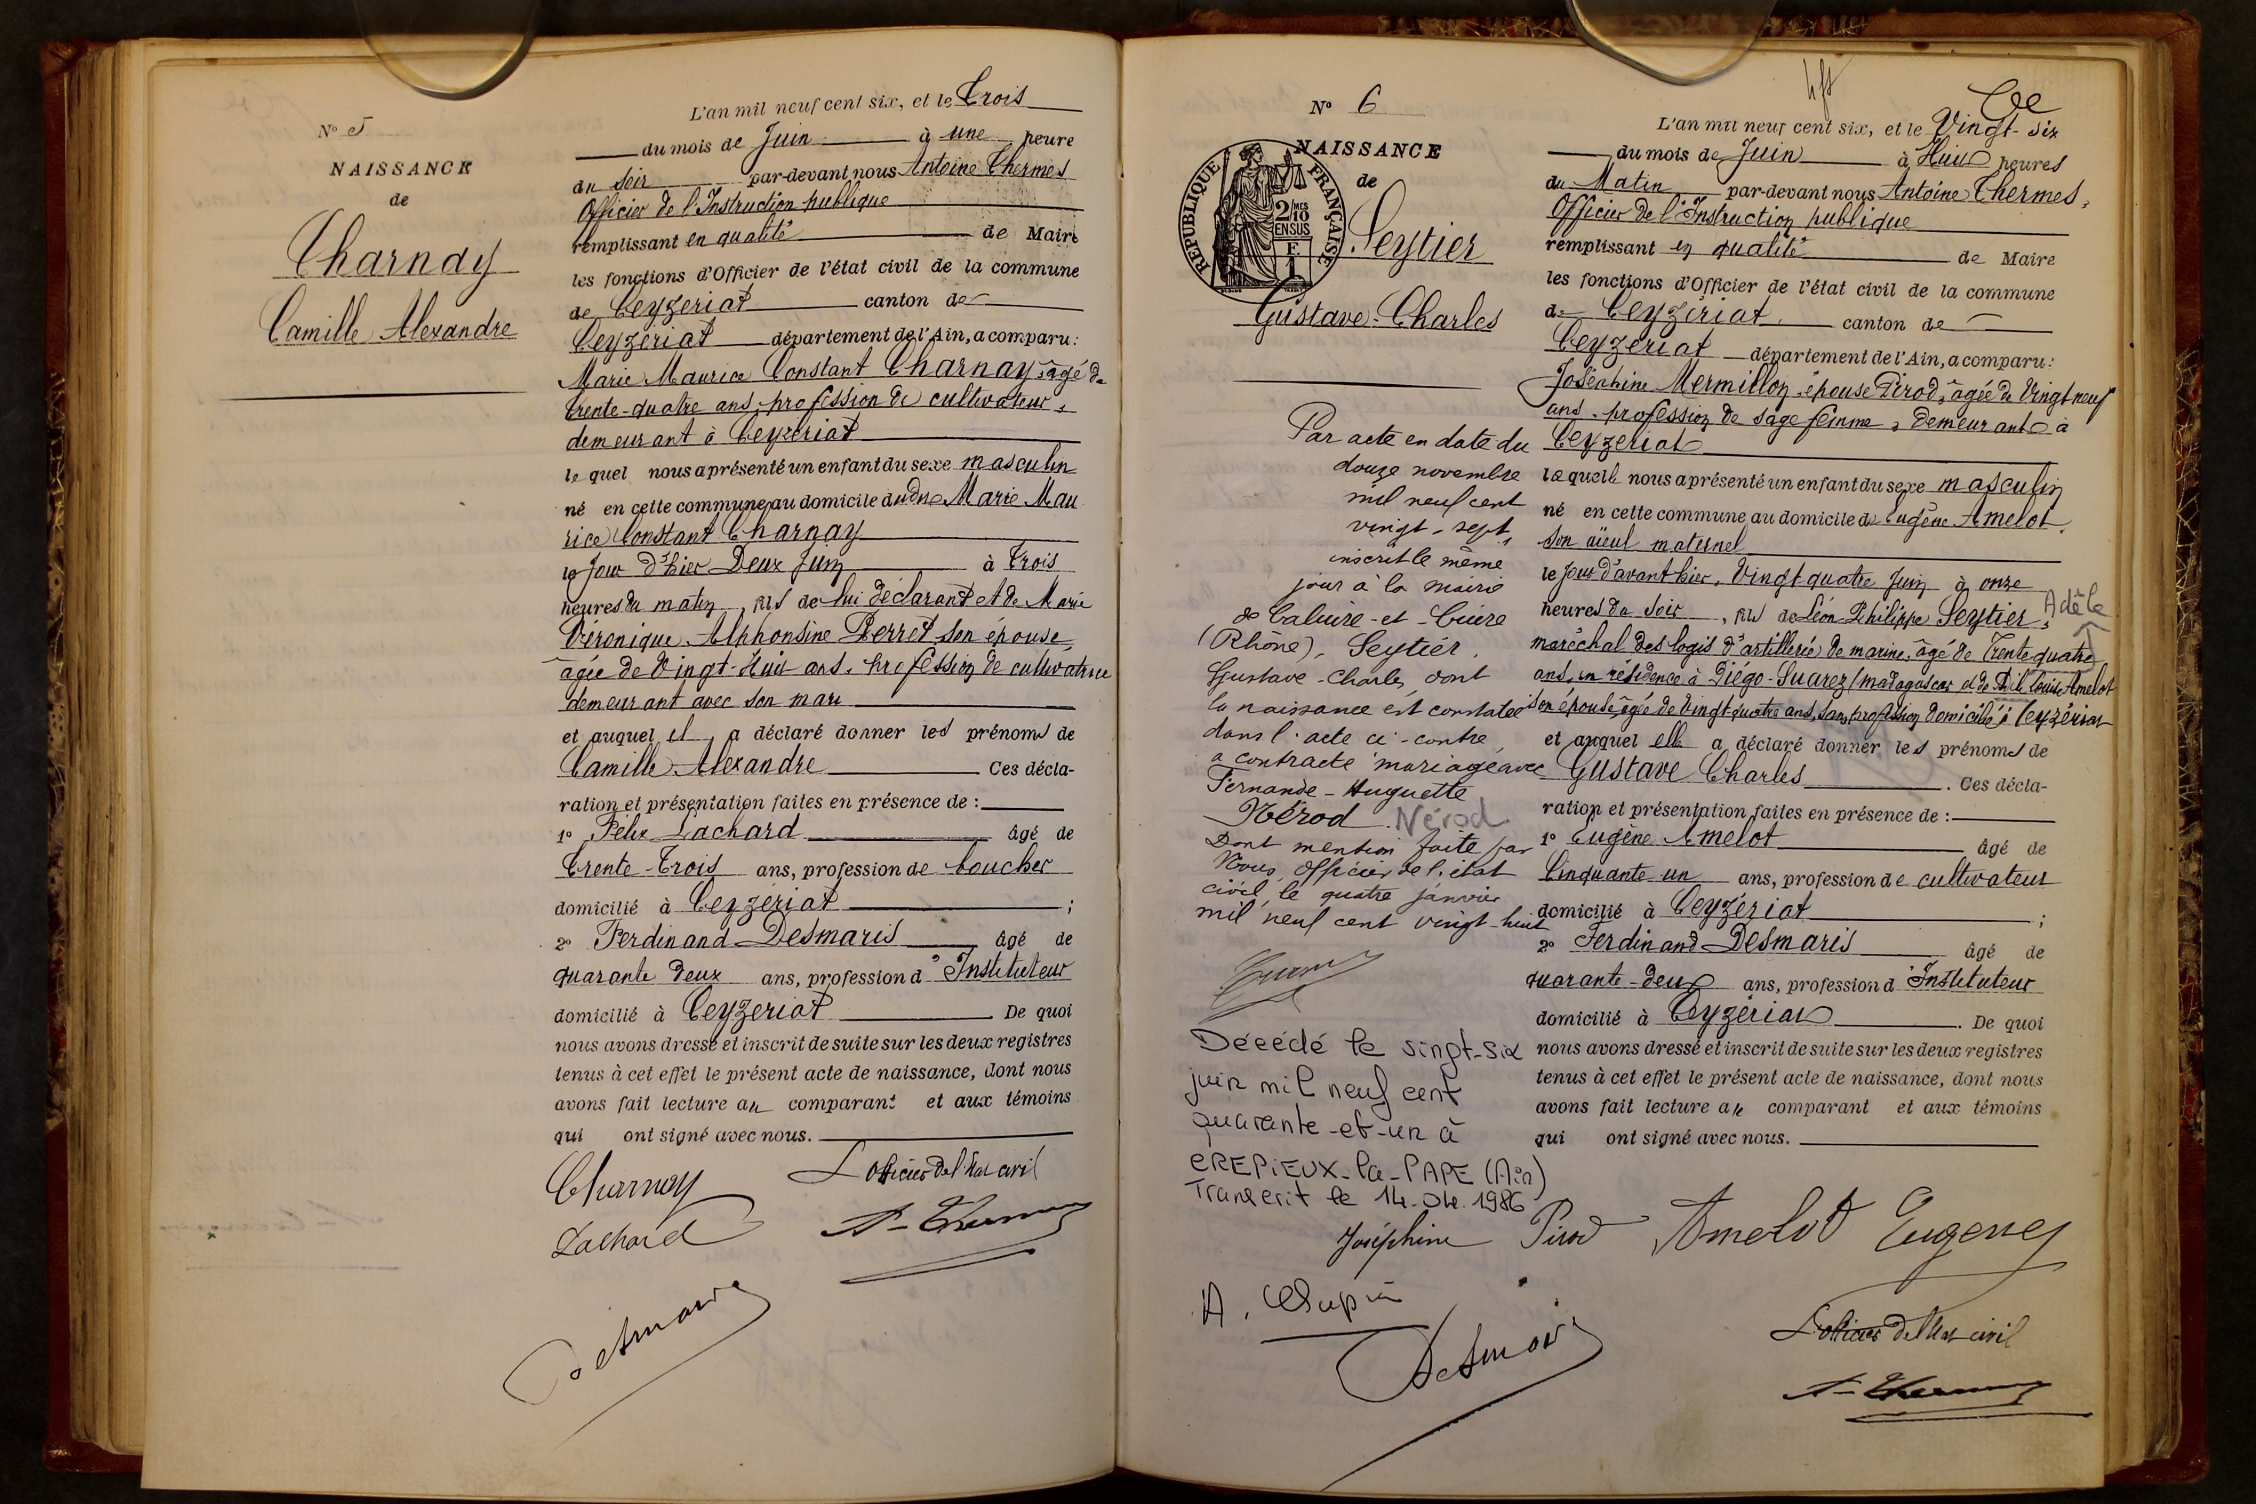 L'an mil neuf cent six, et le Trois
N° 5
du mois de Juin à une heure
NAISSANCE
du Soir par-devant nous Antoine Thermes
de
Officier de l'Instruction publique
Charnay
remplissant en qualité de Maire
les fonctions d'Officier de l'état civil de la commune
Camille Alexandre
de Ceyzériat canton de
Ceyzériat département de l'Ain, a comparu :
Marie Maurice Constant Charnay, âgé de
trente-quatre ans, profession de cultivateur,
demeurant à Ceyzériat
lequel nous a présenté un enfant du sexe masculin
né en cette commune, au domicile dudit Marie Mau
rice Constant Charnay
le jour d'hier Deux Juin à Trois
heures du matin, fils de lui déclarant et de Marie
Véronique Alphonsine Perret son épouse,
âgée de Vingt-Huit ans, profession de cultivatrice
demeurant avec son mari
et auquel il a déclaré donner les prénoms de
Camille Alexandre Ces décla-
ration et présentation faites en présence de :
1° Félix Lachard âgé de
Trente-Trois ans, profession de boucher
domicilié à Ceyzériat ;
2° Ferdinand Desmaris âgé de
quarante deux ans, profession d'Instituteur
domicilié à Ceyzériat De quoi
nous avons dressé et inscrit de suite sur les deux registres
tenus à cet effet le présent acte de naissance, dont nous
avons fait lecture au comparant et aux témoins
qui ont signé avec nous.
Charnay L'officier de l'Etat civil
Lachard A. Thermes
Desmaris
N° 6
L'an mil neuf cent six, et le Vingt-six
NAISSANCE
du mois de Juin à Huit heures
de
du Matin par-devant nous Antoine Thermes,
RÉPUBLIQUE FRANÇAISE
2/MES
10
EN SUS
Officier de l'Instruction publique
Seytier
remplissant en qualité de Maire
les fonctions d'Officier de l'état civil de la commune
Gustave-Charles
de Ceyzériat canton de
Ceyzériat département de l'Ain, a comparu :
Joséphine Mermillon, épouse Pirod, âgée de Vingt neuf
ans, profession de sage femme, demeurant à
Ceyzériat
laquelle nous a présenté un enfant du sexe masculin
né en cette commune au domicile de Eugène Amelot,
son aïeul maternel
le jour d'avant hier, Vingt quatre Juin à onze
heures du soir, fils de Léon Philippe Seytier, Adèle
maréchal des logis d'artillerie de marine, âgé de Trente quatre
ans, en résidence à Diégo-Suarez (Madagascar et de Louise Amelot
son épouse, âgée de Vingt quatre ans, sans profession domiciliée à Ceyzériat
et auquel elle a déclaré donner les prénoms de
Gustave Charles. Ces décla-
ration et présentation faites en présence de :
1° Eugène Amelot âgé de
Cinquante un ans, profession de cultivateur
domicilié à Ceyzériat ;
2° Ferdinand Desmaris âgé de
quarante-deux ans, profession d'Instituteur
domicilié à Ceyzériat. De quoi
nous avons dressé et inscrit de suite sur les deux registres
tenus à cet effet le présent acte de naissance, dont nous
avons fait lecture au comparant et aux témoins
qui ont signé avec nous.
Par acte en date du
douze novembre
mil neuf cent
vingt-sept,
inscrit le même
jour à la mairie
de Caluire-et-Cuire
(Rhône), Seytier,
Gustave-Charles, dont
la naissance est constatée
dans l'acte ci-contre,
a contracté mariage avec
Fernande-Huguette
Nérod. Nérod
Dont mention faite par
Nous, Officier de l'état
civil, le quatre janvier
mil neuf cent vingt-huit
Décédé le vingt-six
juin mil neuf cent
quarante-et-un à
CREPIEUX-la-PAPE (Ain)
Transcrit le 14.04.1986
Joséphine Pirod Amelot Eugene
Desmaris
L'officier de l'Etat civil
A. Thermes